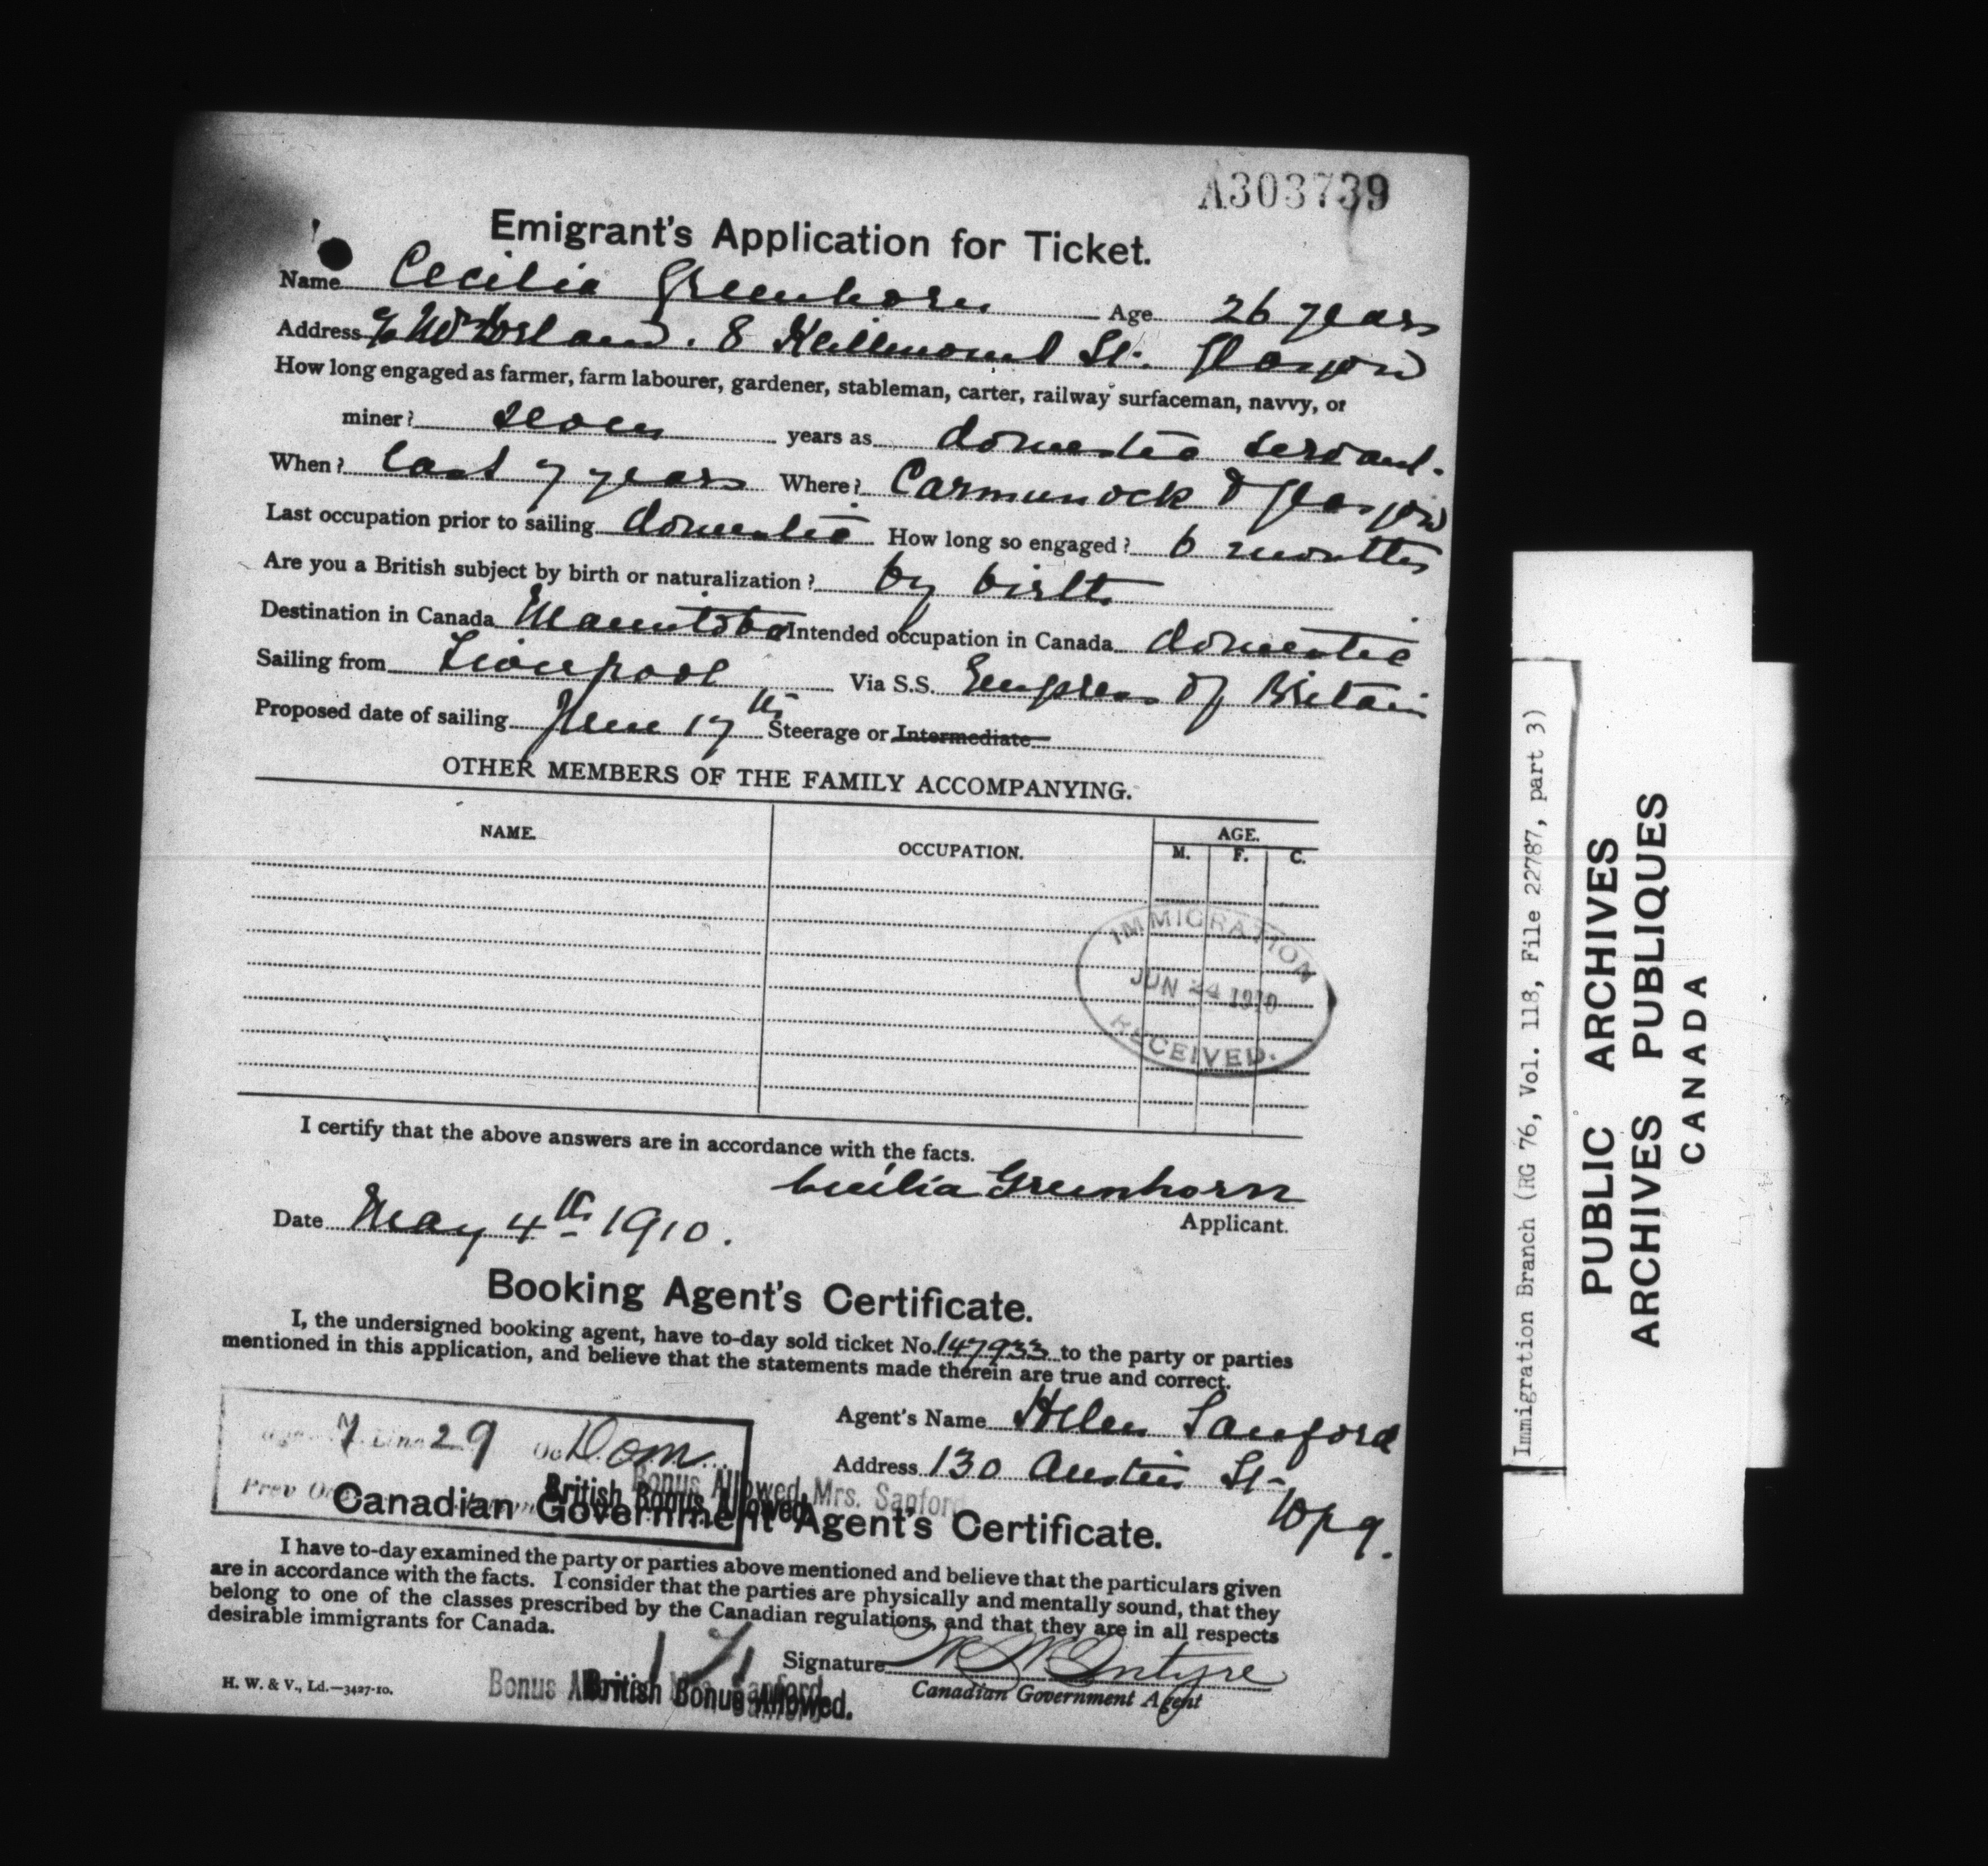 A303739
Emigrant's Application for Ticket.
Name Cecilia Greenhorn Age 26 years
Address c/o 8 St. Glasgow
How long engaged as farmer, farm labourer, gardener, stableman, carter, railway surfaceman, navvy, or
miner? years as domestic servant.
When? last 7 years Where? Carmunock & Glasgow
Last occupation prior to sailing domestic How long so engaged? 6 months
Are you a British subject by birth or naturalization? by birth
Destination in Canada Manitoba Intended occupation in Canada domestic
Sailing from Liverpool Via S.S. Empress of Britain
Proposed date of sailing June 17th Steerage or Intermediate
OTHER MEMBERS OF THE FAMILY ACCOMPANYING.
NAME. OCCUPATION. AGE.
M. F. C.
IMMIGRATION
JUN 24 1910
RECEIVED.
I certify that the above answers are in accordance with the facts.
Cecilia Greenhorn
Date May 4th 1910. Applicant.
Booking Agent's Certificate.
I, the undersigned booking agent, have to-day sold ticket No. 147933 to the party or parties
mentioned in this application, and believe that the statements made therein are true and correct.
Agent's Name Helen Sanford
7 Line 29 Oc Dom
Address 130 Austin St-
Wpg.
Prev
Bonus Allowed, Mrs. Sanford
British Bonus Allowed.
Canadian Government Agent's Certificate.
I have to-day examined the party or parties above mentioned and believe that the particulars given
are in accordance with the facts. I consider that the parties are physically and mentally sound, that they
belong to one of the classes prescribed by the Canadian regulations, and that they are in all respects
desirable immigrants for Canada.
Signature McIntyre
Canadian Government Agent
H. W. & V., Ld.—3427-10.
Bonus Sanford
British Bonus Allowed.
Immigration Branch (RG 76, Vol. 118, File 22787, part 3)
PUBLIC ARCHIVES
ARCHIVES PUBLIQUES
CANADA